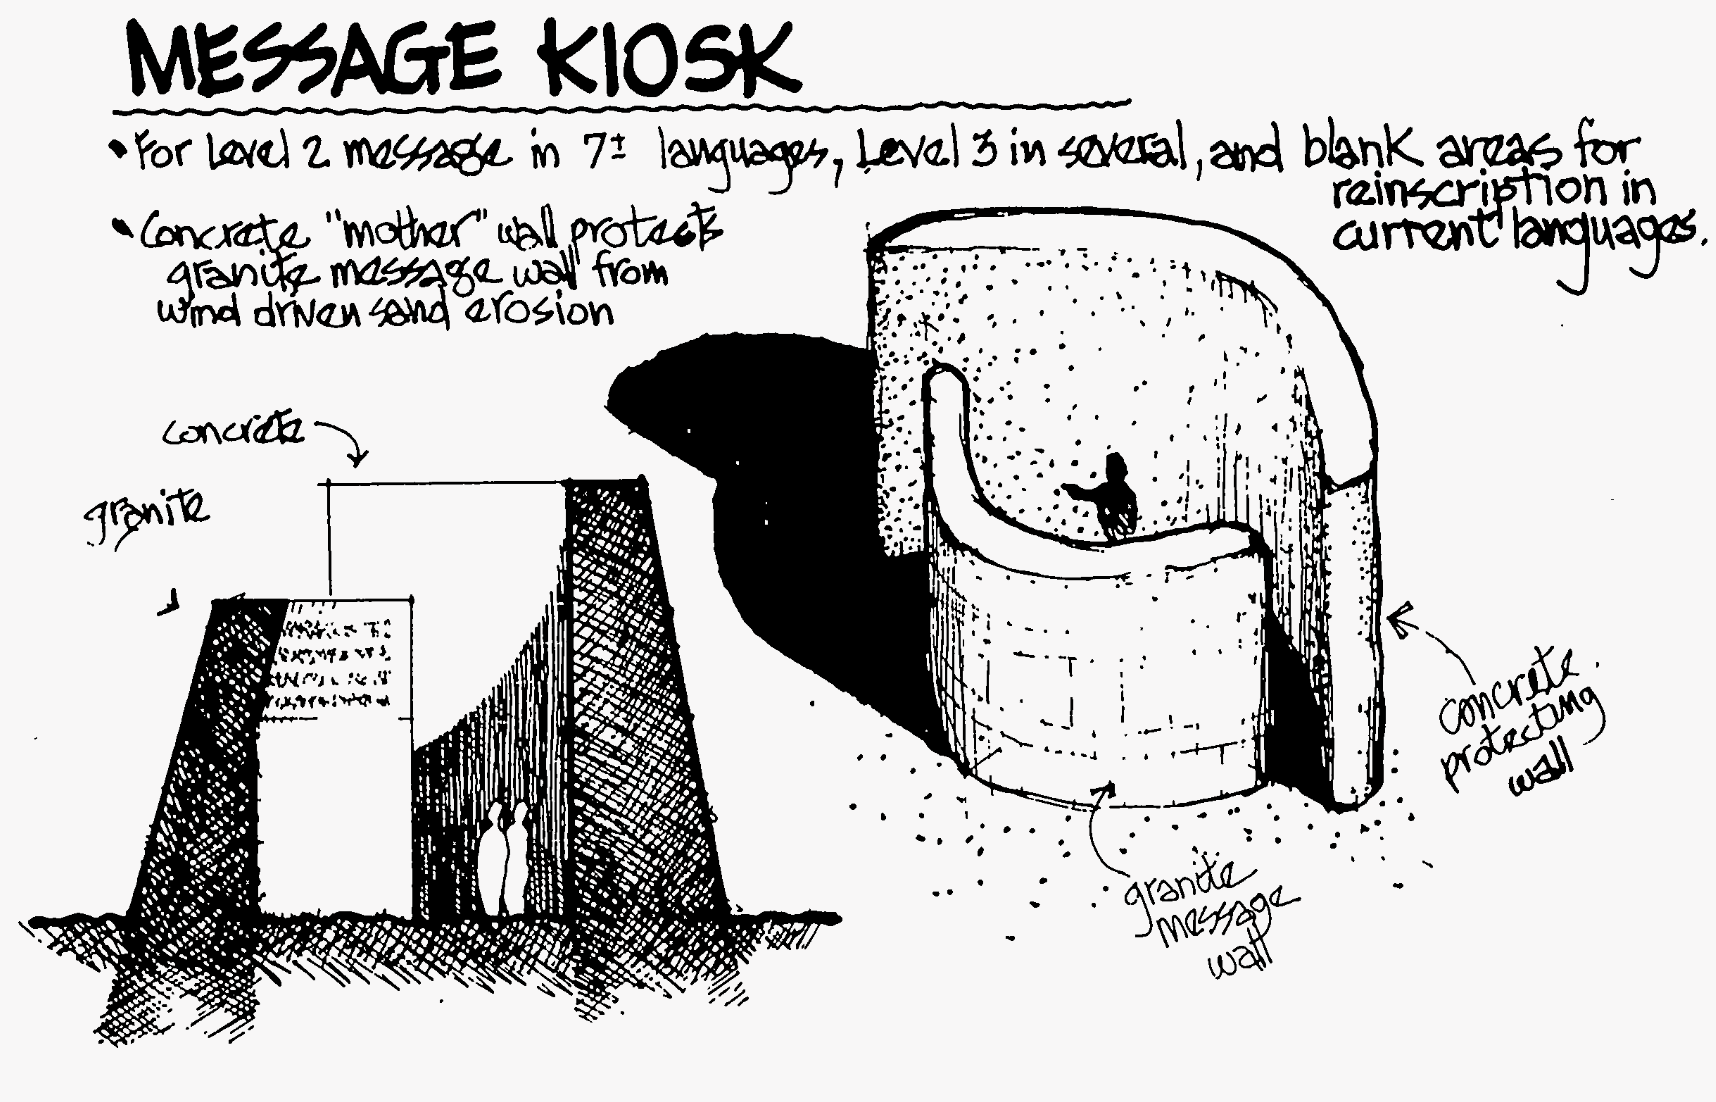 MESSAGE KIOSK
• For Level 2 message in 7± languages, Level 3 in several, and blank areas for
reinscription in
current languages.
• Concrete "mother" wall protects
granite message wall from
wind driven sand erosion
concrete
granite
concrete
protecting
wall
granite
message
wall